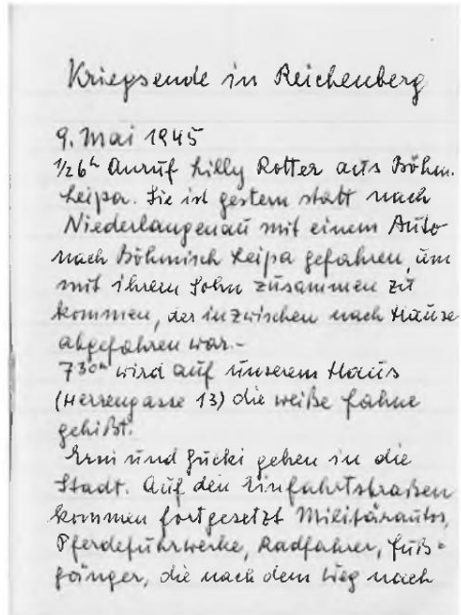 Kriegsende in Reichenberg
9. Mai 1945
1/2 6ʰ Anruf Lilly Rotter aus Böhm.
Leipa. Sie ist gestern statt nach
Niederlangenau mit einem Auto
nach Böhmisch Leipa gefahren, um
mit ihrem Sohn zusammen zu
kommen, der inzwischen nach Hause
abgefahren war.-
7 30ʰ wird auf unserem Haus
(Herrengasse 13) die weiße Fahne
gehißt.
Erni und Gucki gehen in die
Stadt. Auf den Einfahrtstraßen
kommen fortgesetzt Militärautos,
Pferdefuhrwerke, Radfahrer, Fuß=
gänger, die nach dem Weg nach